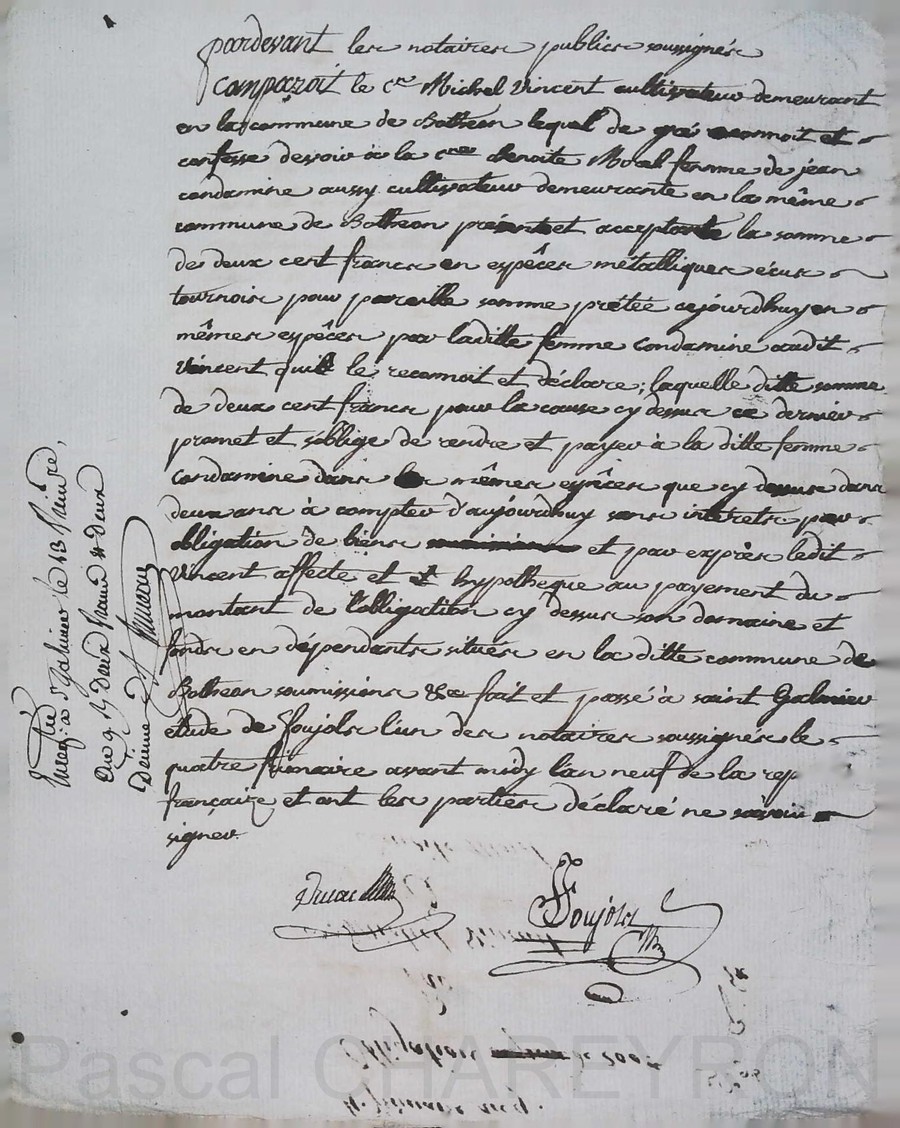 pardevant les notaires publics soussignés
comparoit le cen Michel Vincent cultivateur demeurant
en la commune de Botheon lequel de gré reconnoit et
confesse devoir à la cnne benoite Morel femme de jean
condamine aussy cultivateur demeurante en la même
commune de Botheon présente et acceptante la somme
de deux cent francs en espêces métalliques écus
tournois pour pareille somme prétée cejourdhuy en
mêmes espêces par laditte femme Condamine audit
Vincent qui le reconnoit et déclare; laquelle ditte somme
de deux cent francs pour la cause cy dessus ce dernier
promet et soblige de rendre et payer à la ditte femme
Condamine dans les mêmes espêces que cy dessus dans
deux ans à compter d'aujourdhuy sans interets par
obligation de biens et par exprès ledit
Vincent affecte et hypotheque au payement du
montant de l'obligation cy dessus son domaine et
fonds en dépendants situés en la ditte commune de
Botheon soumissions &ca fait et passé à saint Galmier
etude de foujols l'un des notaires soussignés le
quatre frimaire avant midy l'an neuf de la rep
française et ont les parties déclaré ne savoir
signer
Foujols
Enregtré à St Galmier le 13 frimaire,
an 9 Deux francs
Dixme
Obligation de 200f
4. frimaire an 9.
Pascal CHAREYRON